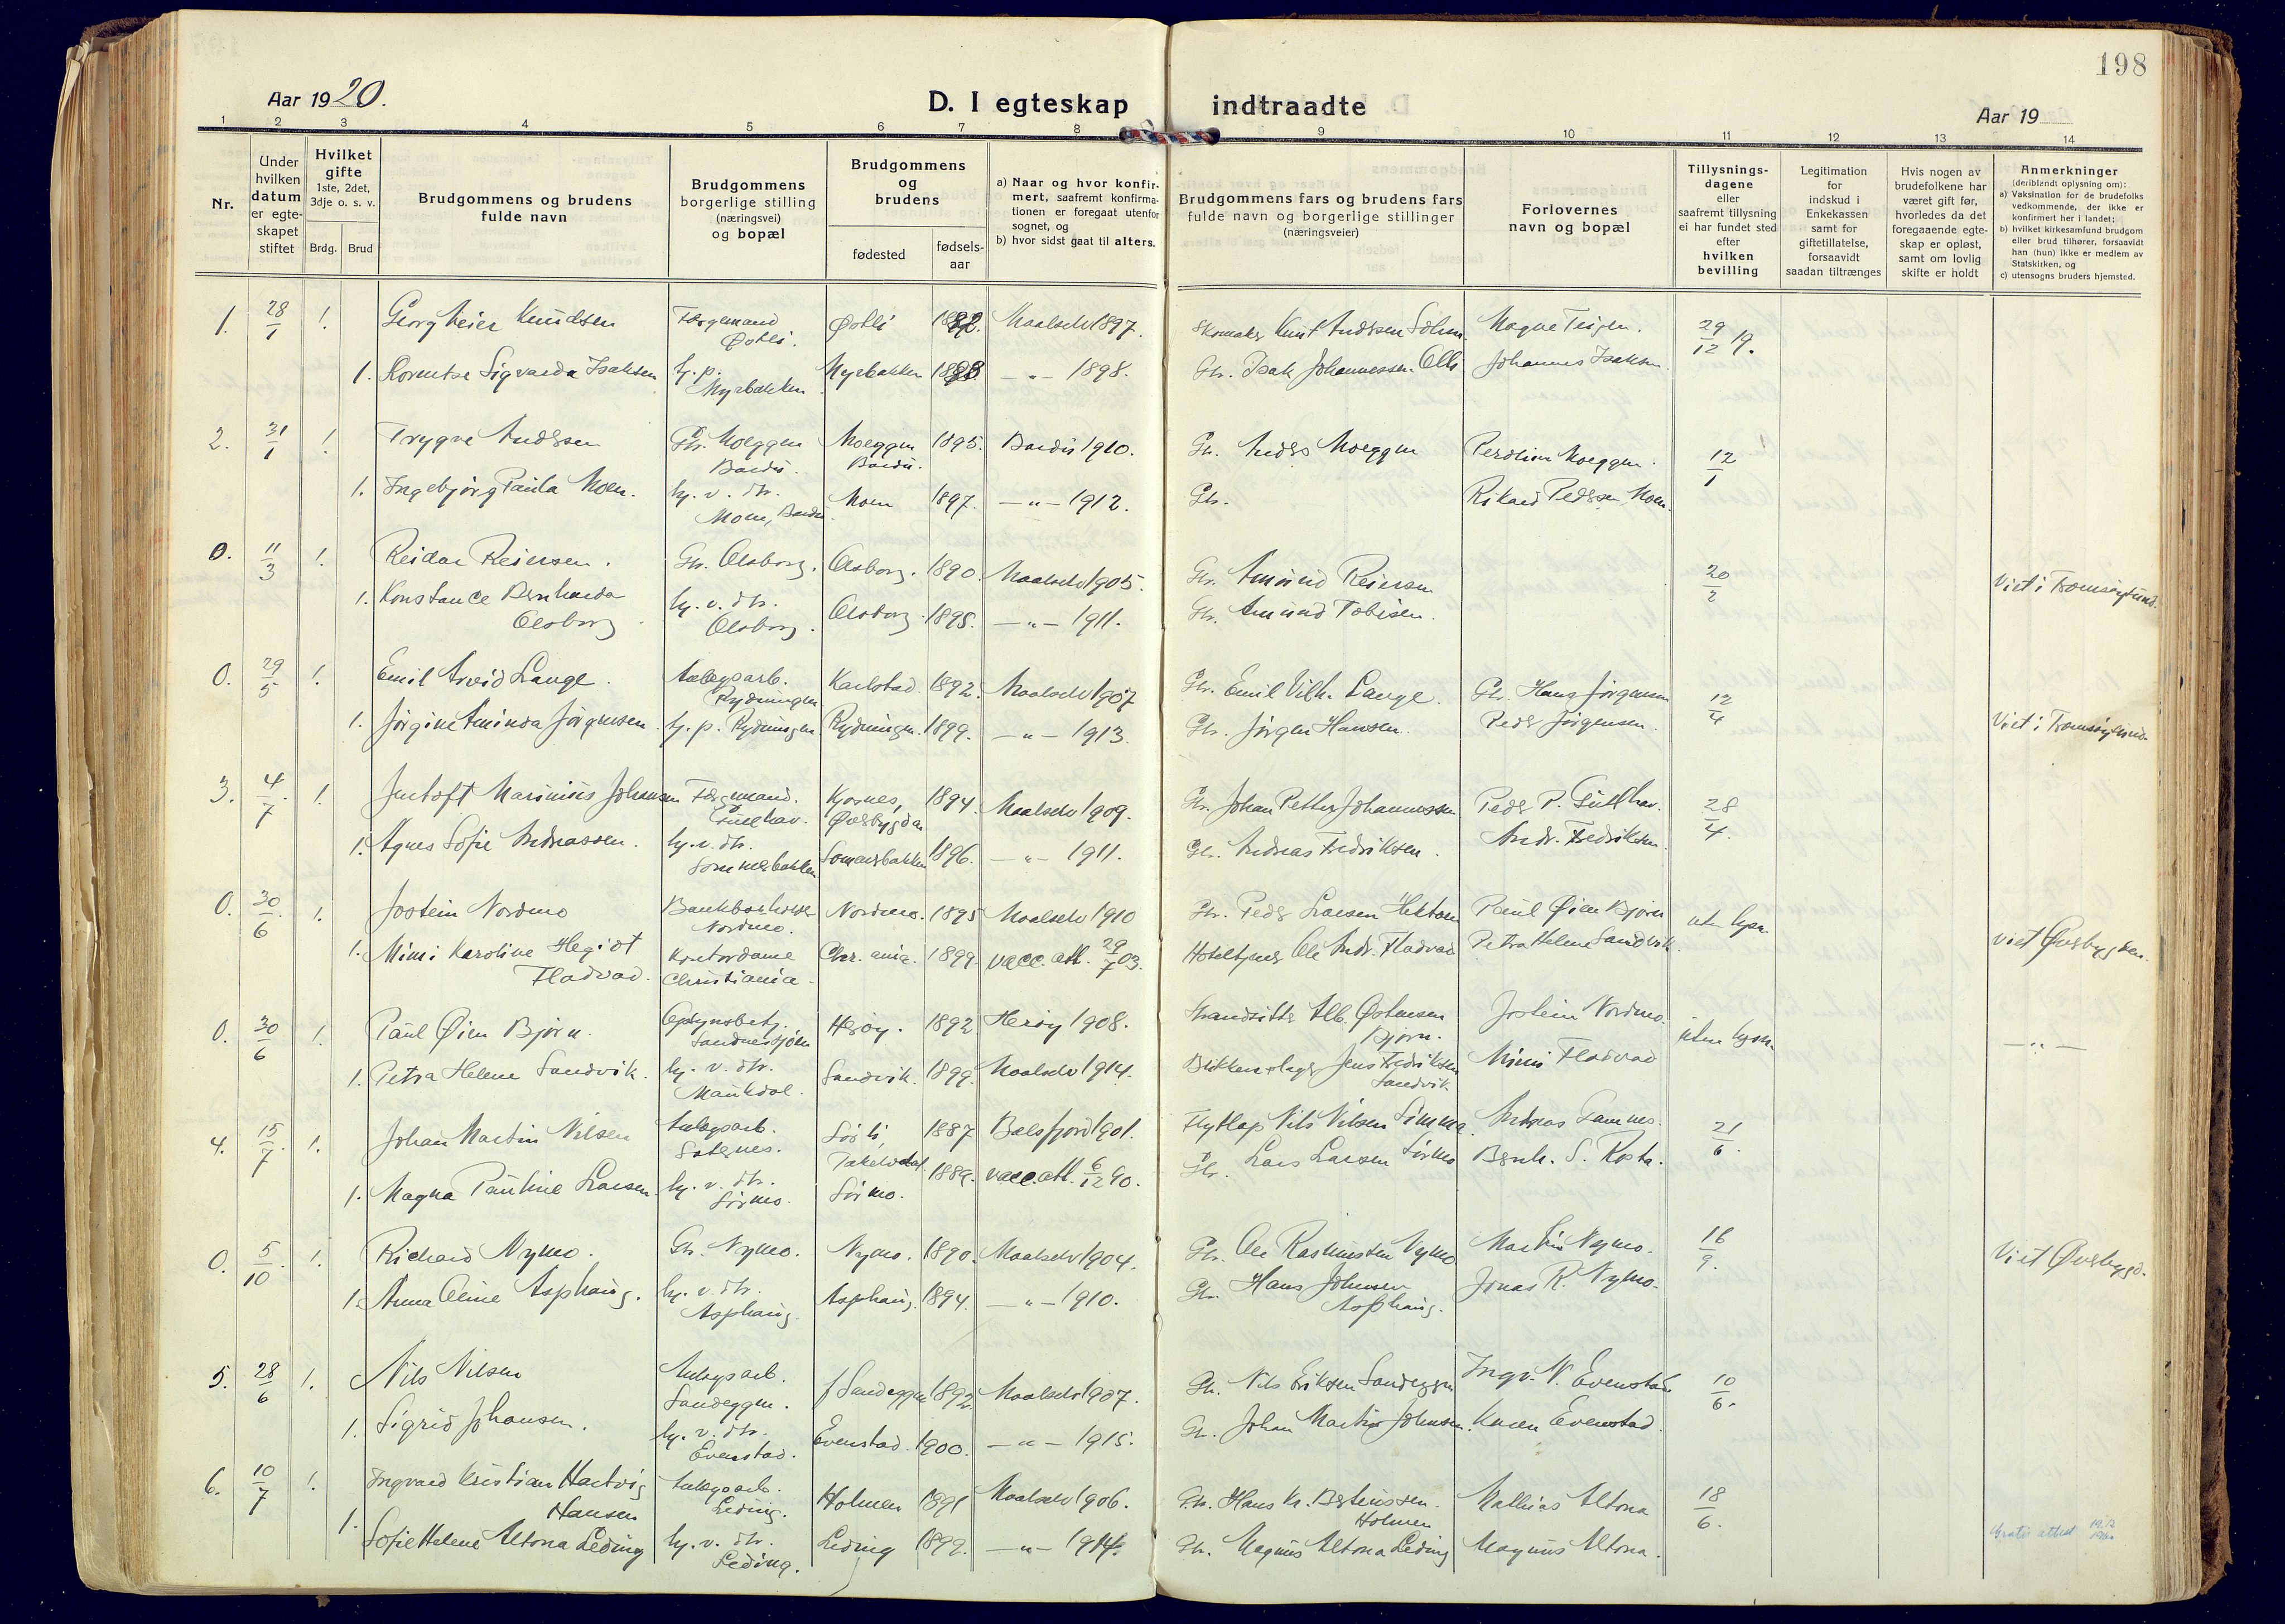 198
Aar 1920.
D. I egteskap indtraadte
Aar 19
1 2 3 4 5 6 7 8 9 10 11 12 13 14
Nr.
Under hvilken datum er egte-skapet stiftet
Hvilket gifte 1ste, 2det, 3dje o. s. v.
Brdg. Brud
Brudgommens og brudens fulde navn
Brudgommens borgerlige stilling (næringsvei) og bopæl
Brudgommens og brudens
fødested
fødsels-aar
a) Naar og hvor konfir-mert, saafremt konfirma-tionen er foregaat utenfor sognet, og
b) hvor sidst gaat til alters.
Brudgommens fars og brudens fars fulde navn og borgerlige stillinger (næringsveier)
Forlovernes navn og bopæl
Tillysnings-dagene eller saafremt tillysning ei har fundet sted efter hvilken bevilling
Legitimation for indskud i Enkekassen samt for giftetillatelse, forsaavidt saadan tiltrænges
Hvis nogen av brudefolkene har været gift før, hvorledes da det foregaaende egte-skap er opløst, samt om lovlig skifte er holdt
Anmerkninger (deriblendt oplysning om):
a) Vaksination for de brudefolks vedkommende, der ikke er konfirmert her i landet;
b) hvilket kirkesamfund brudgom eller brud tilhører, forsaavidt han (hun) ikke er medlem av Statskirken, og
c) utensogns bruders hjemsted.
1. 28/1 1. Georg Meier Knudsen Færgemand Østli. Østli Maalselv 1897. Skomaker Knut Andersen Magne Teigen. 29/12 19.
1. Sigvarda Isaksen h. p. Myrbakken Myrbakken -"- 1898. Gbr. Isak Johannessen Olli Johannes Isaksen
2. 31/1 1. Trygve Andersen Gbr. Moeggen Bardu. Moeggen Bardu. 1895. Bardu 1910. Gbr. Anders Moeggen Moeggen. 12/1
1. Ingebjørg Paula Moen. hj. v. dtr. Moen, Bardu. Moen 1897. -"- 1912. Gbr. Rikard Pedersen Moen.
0. 11/3 1. Reidar Reiersen. Gbr. Olsborg. Olsborg. 1890. Maalselv 1905. Gbr. Amund Reiersen 20/2 Viet i Tromsøysund.
1. Konstance Bernharda Olsborg hj. v. dtr. Olsborg. Olsborg. 1895. -"- 1911. Gbr. Amund Tobisen.
0. 29/5 1. Emil Arvid Lange. Anlegsarb. Rydningen Karlstad. 1892. Maalselv 1907 Gbr. Emil Vilh. Lange. Gbr. Hans Jørgensen 12/4 Viet i Tromsøysund.
1. Jørgine Aminda Jørgensen hj. p. Rydningen Rydningen. 1899. -"- 1913. Gbr. Jørgen Hansen. Peder Jørgensen.
3. 4/7 1. Jentoft Marinius Johansen Færgemand. Gullhav. Kjosnes, Øverbygden 1894. Maalselv 1909. Gbr. Johan Petter Johannessen Peder P. Gullhav. 28/4.
1. Agnes Sofie Andreassen. hj. v. dtr. Sommerbakken Sommerbakken 1896. -"- 1911. Gbr. Andreas Fredriksen. Andr. Fredriksen.
0. 30/6. 1. Jostein Nordmo Bankbokholder Nordmo. Nordmo. 1895 Maalselv 1910 Gbr. Peder Larsen Hektoen Paul Øien Bjørn uten lysn. viet Øverbygden.
1. Mimi Karoline Hegidt Fladvad. Kontordame Christiania. Chr.ania. 1899. vacc. att. 29/7 03. Hoteltjener Ole Andr. Fladvad Petra Helene Sandvik.
0. 30/6 1. Paul Øien Bjørn. Opsynsbetj. Sandnessjøen Herøy. 1892 Herøy 1908. Strandsitter Alb. Østensen Bjørn. Jostein Nordmo. uten lysn. -"-
1. Petra Helene Sandvik. hj. v. dtr. Maukdal. Sandvik. 1899. Maalselv 1914. Blikkenslager Jens Fredriksen Sandvik. Mimi Fladvad
4. 15/7. 1. Johan Martin Nilsen Anlegsarb. Sørli, Takelvdal. 1887 Balsfjord 1901. Flytlap Nils Nilsen Simma. Andreas 21/6.
1. Magna Pauline Larsen. hj. v. dtr. Sørmo. Sørmo. 1889. vacc. att. 6/12 90. Gbr. Lars Larsen Sørmo Bernh. S. Rosta.
0. 5/10. 1. Richard Nymo. Gbr. Nymo. Nymo. 1890. Maalselv 1904. Gbr. Ole Rasmussen Nymo Martin Nymo. 16/9. Viet Øverbygd.
1. Anna Oline Asphaug. hj. v. dtr. Asphaug. Asphaug. 1894. -"- 1910. Gbr. Hans Johnsen Asphaug. Jonas R. Nymo.
5. 28/6 1. Nils Nilsen Anlegsarb. Sandeggen. Sandeggen 1892. Maalselv 1907. Gbr. Nils Eriksen Sandeggen Ingv. N. Evenstad 10/6.
1. Sigrid Johansen. hj. v. dtr. Evenstad. Evenstad. 1900. -"- 1915. Gbr. Johan Martin Johnsen. Karen Evenstad.
6. 10/7 1. Ingvard Kristian Hartvig Hansen Anlegsarb. Leding. Holmen 1891 Maalselv 1906. Gbr. Hans Kr. Berteussen. Holmen Mathias Altona 18/6.
1. Sofie Helene Altona Leding hj. v. dtr. Leding. Leding 1899. -"- 1914. Gbr. Magnus Altona Leding Magnus Altona.